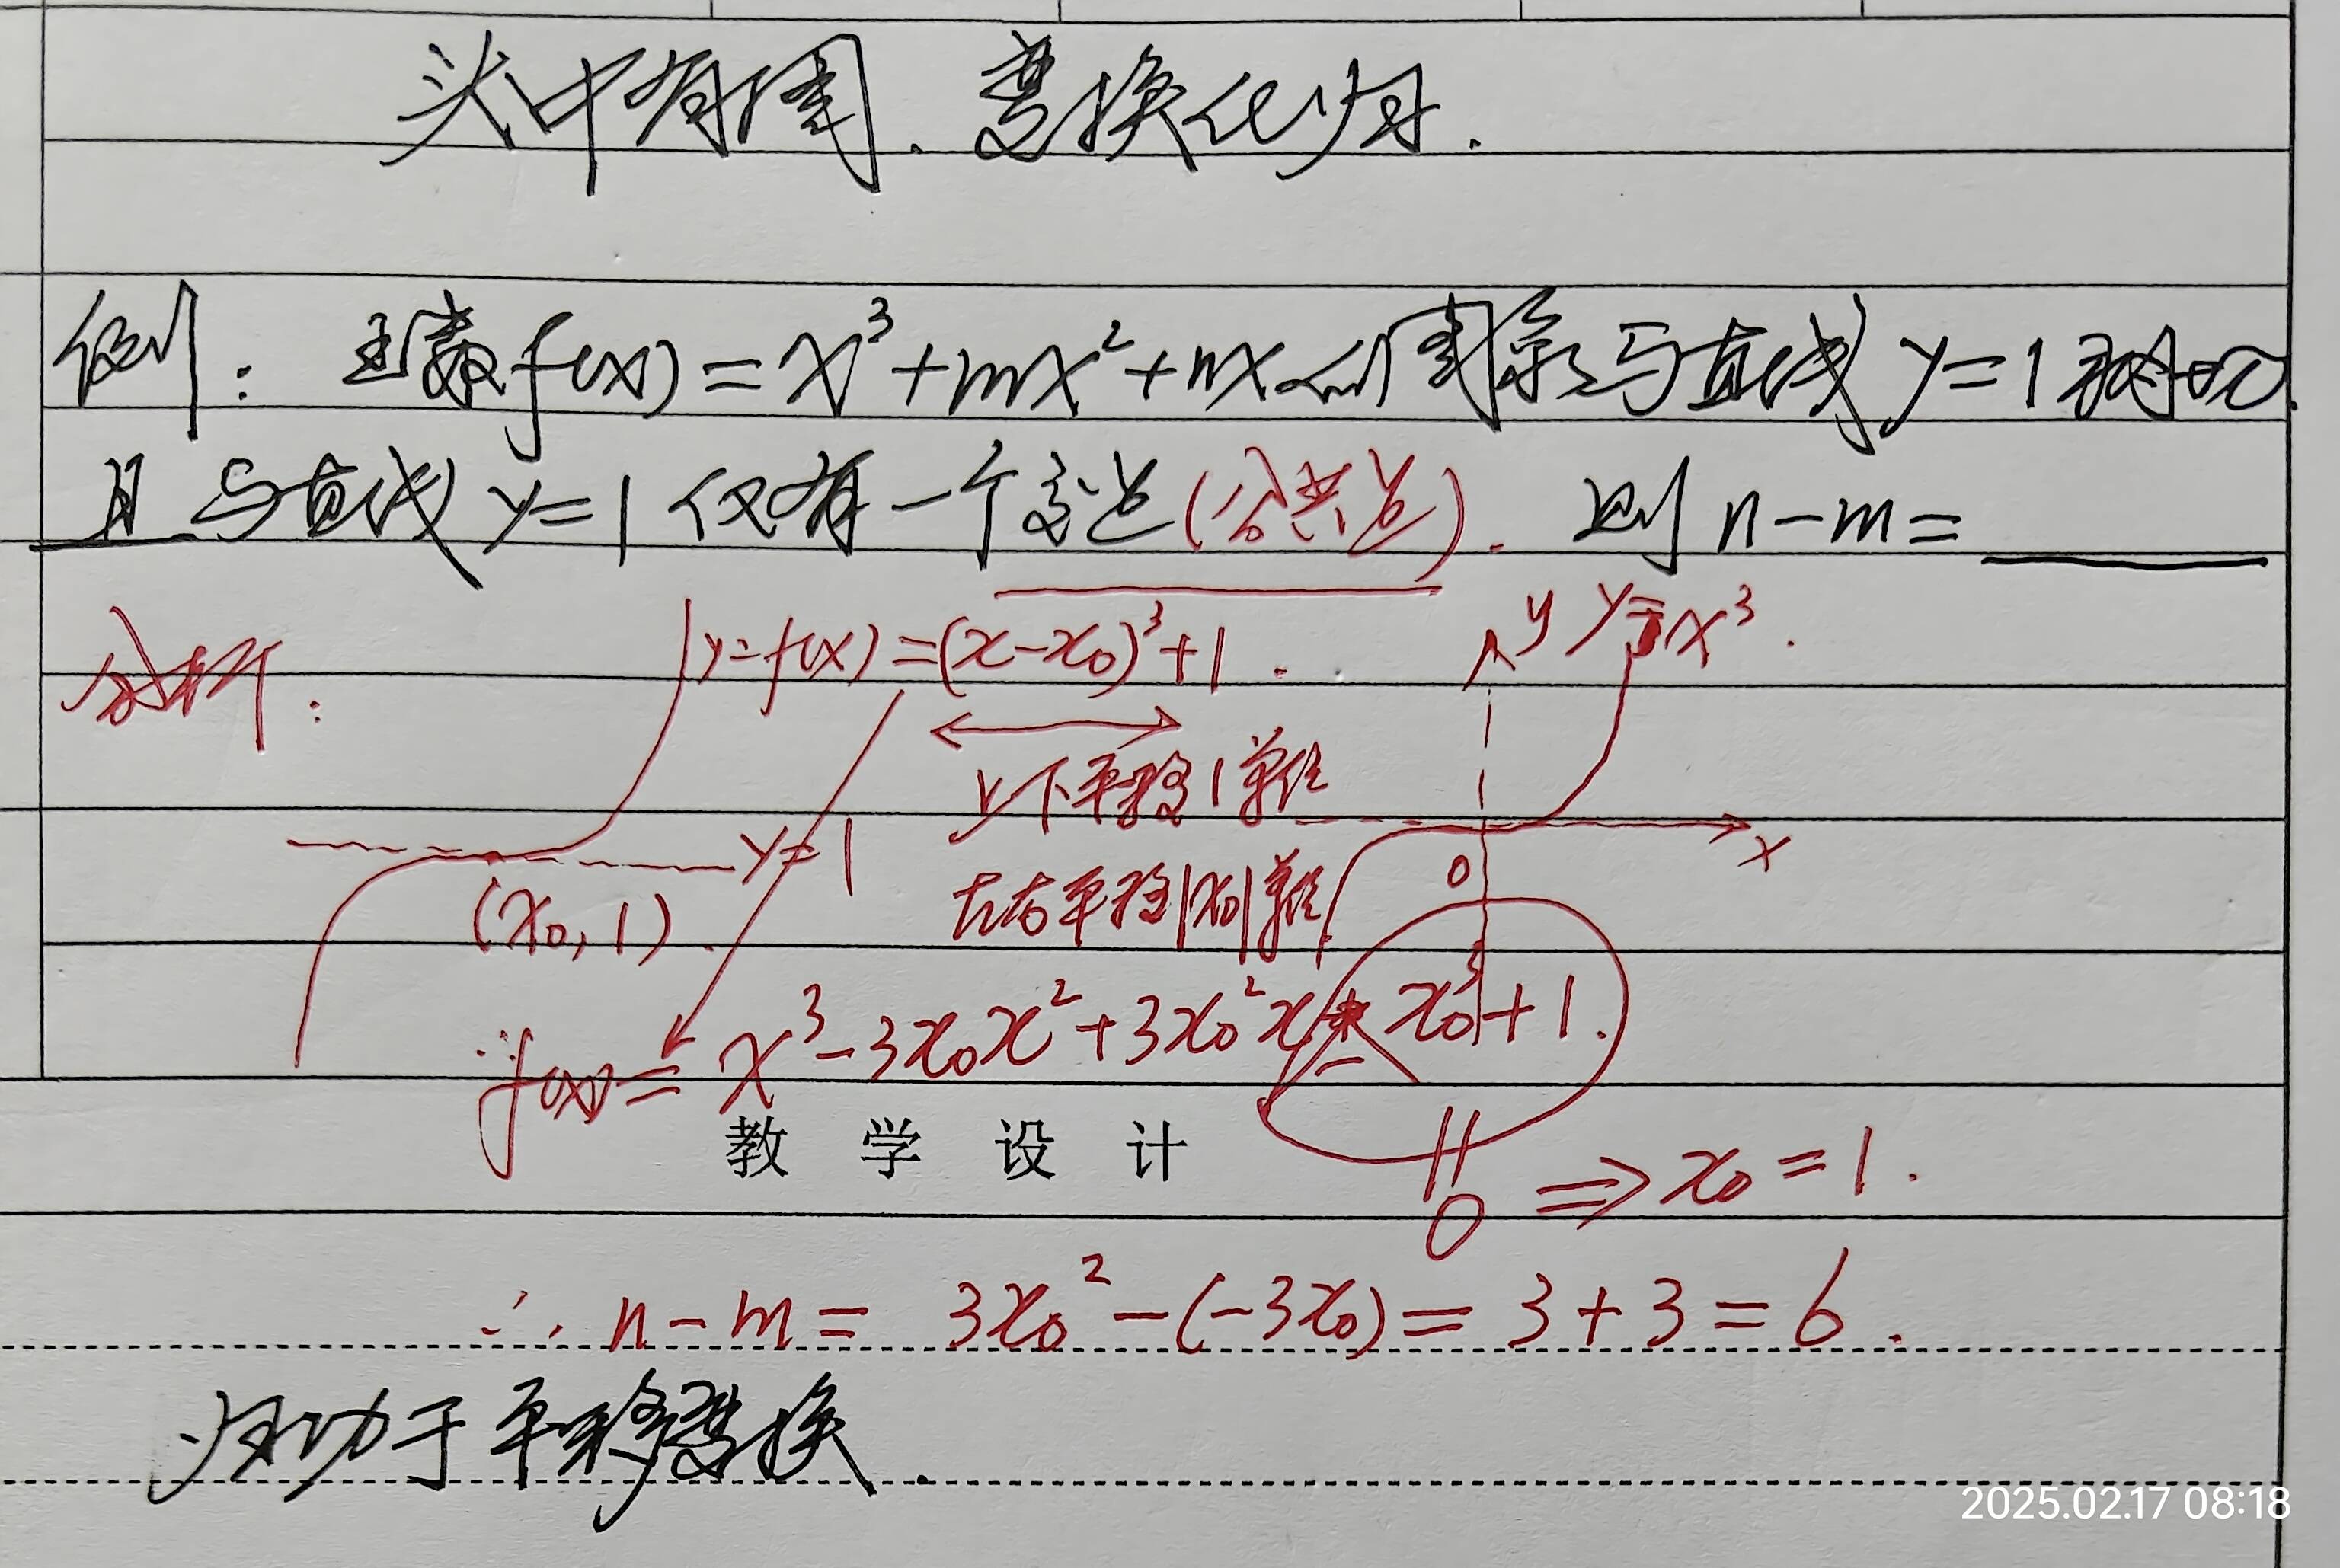 头中有图、变换化归.
例: 函数f(x)=x³+mx²+nx的图象与直线y=1相切
且与直线y=1仅有一个交点(公共点). 则n-m=______
分析:
y=f(x)=(x-x₀)³+1.
y y=x³.
上下平移1单位
y=1
x
0
左右平移|x₀|单位
(x₀,1).
∴f(x)=x³-3x₀x²+3x₀²x-x₀³+1.
教学设计
0 ⇒x₀=1.
∴ n-m= 3x₀²-(-3x₀)=3+3=6.
归功于平移变换.
2025.02.17 08:18